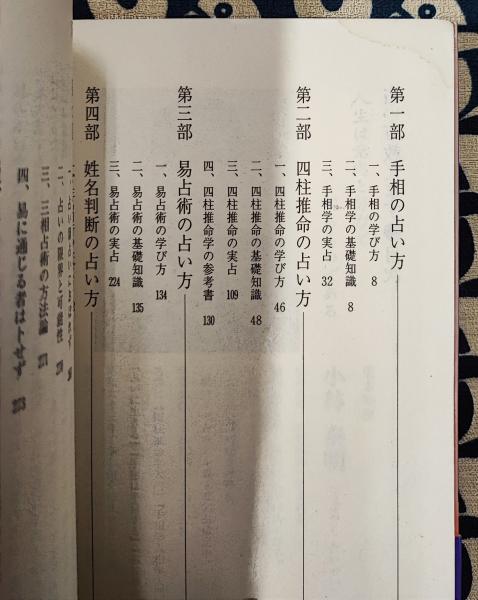 第一部 手相の占い方
一、手相の学び方 8
二、手相学の基礎知識 8
三、手相学の実占 32
第二部 四柱推命の占い方
一、四柱推命の学び方 46
二、四柱推命の基礎知識 48
三、四柱推命の実占 109
四、四柱推命学の参考書 130
第三部 易占術の占い方
一、易占術の学び方 134
二、易占術の基礎知識 135
三、易占術の実占 224
第四部 姓名判断の占い方
二、占いの限界と可能性
三、三相占術の方法論 271
四、易に通じる者はトせず 273